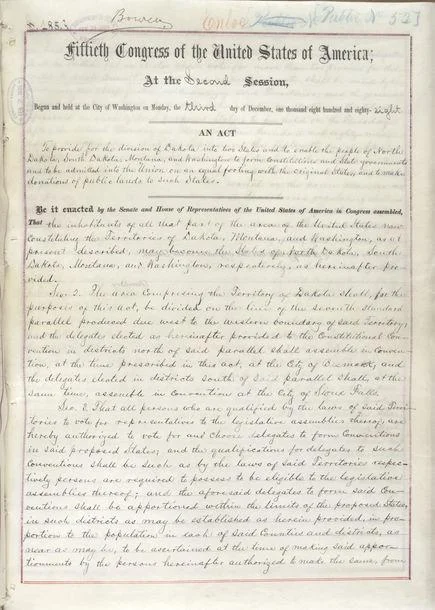 Bowen
Public No 52]
Fiftieth Congress of the United States of America;
At the Second Session,
Begun and held at the City of Washington on Monday, the third day of December, one thousand eight hundred and eighty-eight.
AN ACT
To provide for the division of Dakota into two States and to enable the people of North
Dakota, South Dakota, Montana, and Washington to form constitutions and State governments
and to be admitted into the Union on an equal footing with the original States, and to make
donations of public lands to such States.
Be it enacted by the Senate and House of Representatives of the United States of America in Congress assembled,
That the inhabitants of all that part of the area of the United States now
constituting the Territories of Dakota, Montana, and Washington, as at
present described, may become the States of North Dakota, South
Dakota, Montana, and Washington, respectively, as hereinafter pro-
vided.
Sec. 2. The area comprising the Territory of Dakota shall, for the
purposes of this act, be divided on the line of the seventh standard
parallel produced due west to the western boundary of said Territory;
and the delegates elected as hereinafter provided to the Constitutional Con-
vention in districts north of said parallel shall assemble in Conven-
tion, at the time prescribed in this act, at the City of Bismarck; and
the delegates elected in districts south of said parallel shall, at the
same time, assemble in Convention at the City of Sioux Falls.
Sec. 3. That all persons who are qualified by the laws of said Terri-
tories to vote for representatives to the legislative assemblies thereof, are
hereby authorized to vote for and choose delegates to form Conventions
in said proposed States; and the qualifications for delegates to such
Conventions shall be such as by the laws of said Territories respec-
tively persons are required to possess to be eligible to the legislative
assemblies thereof; and the aforesaid delegates to form said Con-
ventions shall be apportioned within the limits of the proposed States,
in such districts as may be established as herein provided, in pro-
portion to the population in each of said Counties and districts, as
near as may be, to be ascertained at the time of making said appor-
tionments by the persons hereinafter authorized to make the same, from